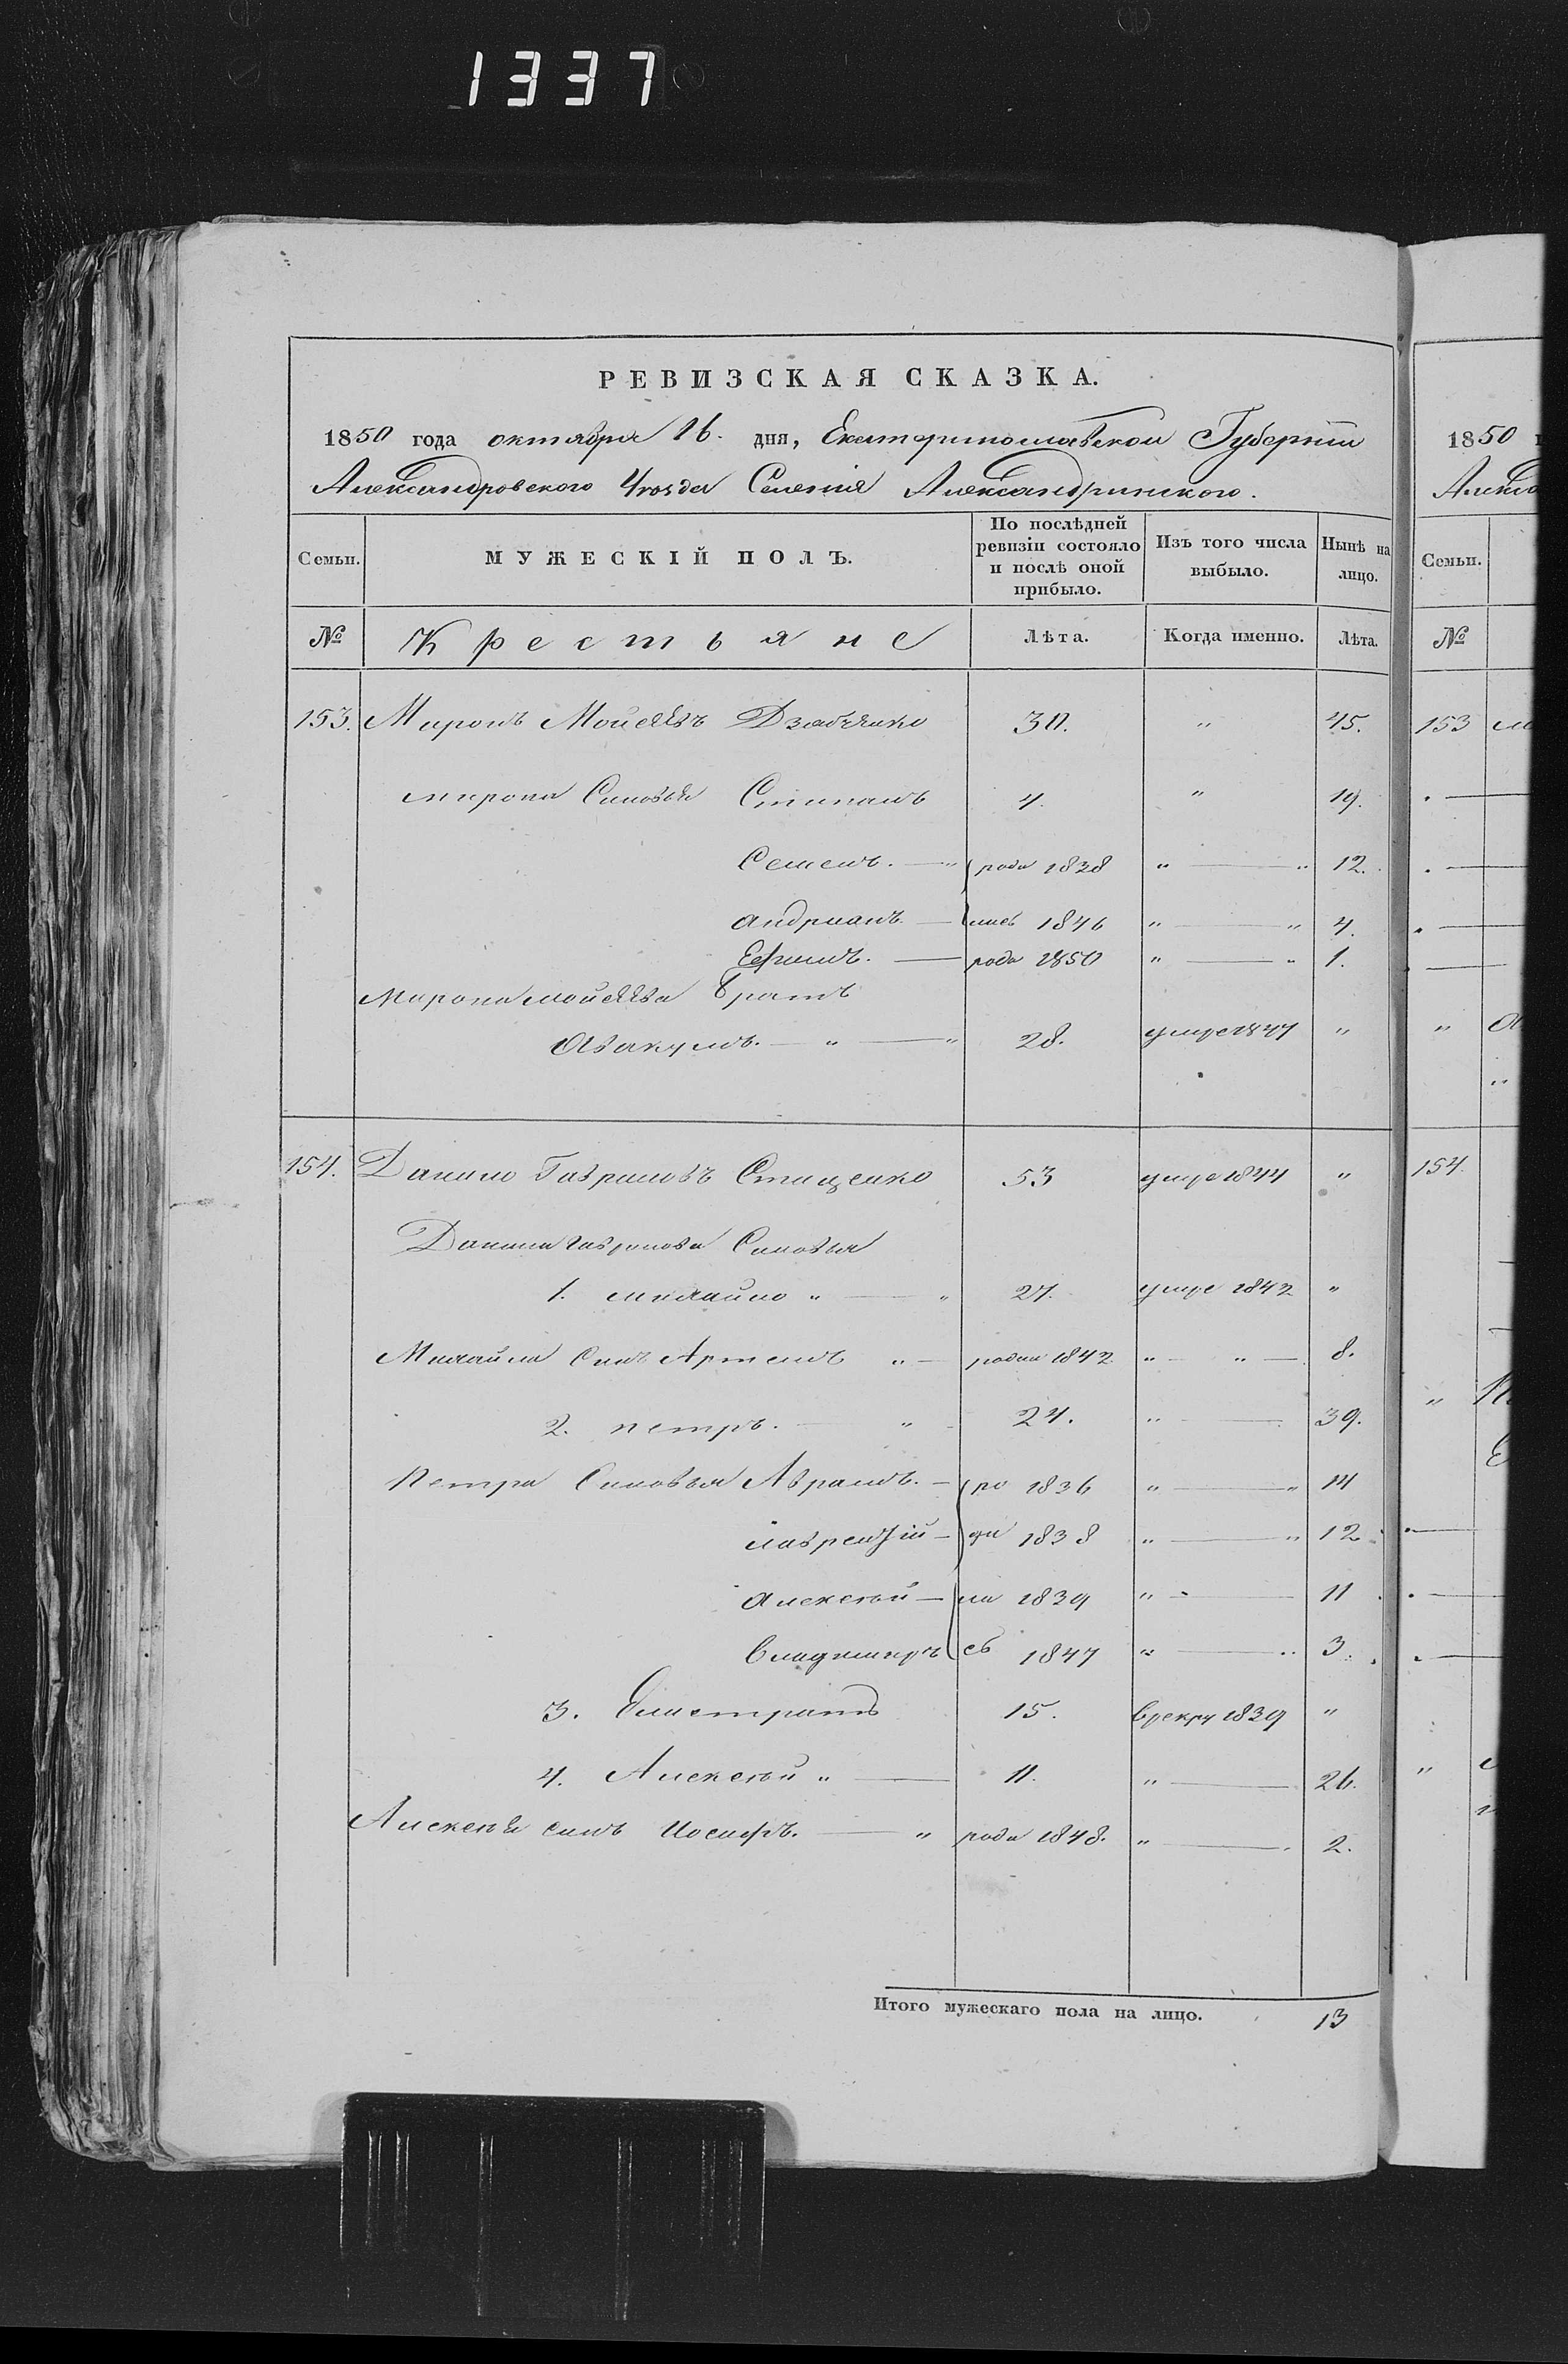 1337
РЕВИЗСКАЯ СКАЗКА.
1850 года октября 16. дня, Екатеринославской Губерніи
Александровского Уѣзда Селенія Александринского.
Семьи. МУЖЕСКІЙ ПОЛЪ. По послѣдней ревизіи состояло и послѣ оной прибыло. Изъ того числа выбыло. Нынѣ на лицо.
№ Крестьяне Лѣта. Когда именно. Лѣта.
153. Миронъ Мойсеевъ 30. " 45.
мирона Синовья Стипанъ 4. " 19.
Семенъ. — " роди 1838 " — " 12.
андрианъ — лись 1846 " — " 4.
Ефимъ. — роди 1850 " — " 1.
Мирона мойсеева братъ
Авакумъ. — " — " 28. умре 1847 "
154. Данило Гавриловъ Стищенко 53 умре 1844 "
Данила гаврилова Синовья
1. михайло " — " 27. умре 1842 "
Михайла Синъ Артемъ " — родил 1842 " — " — 8.
2. петръ. — " 24. " — 39.
Петра Синовья Аврамъ. — ро 1836 " — " 14
лаврентій — ди 1838 " — " 12
алексѣй — ли 1839 " — 11
владимиръ сь 1847 " — " 3.
3. Елистратъ 15. в рекру 1839 "
4. Алексѣй " — 11. " — 26.
Алексѣя синъ Иосифъ. — " роди 1848. " — 2.
Итого мужескаго пола на лицо. 13
1850
Семьи.
№
153
154.